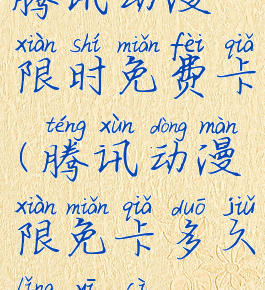 腾讯动漫
xiàn shí miǎn fèi qiǎ
限时免费卡
téng xùn dòng màn
(腾讯动漫
xiàn miǎn qiǎ duō jiǔ
限免卡多久